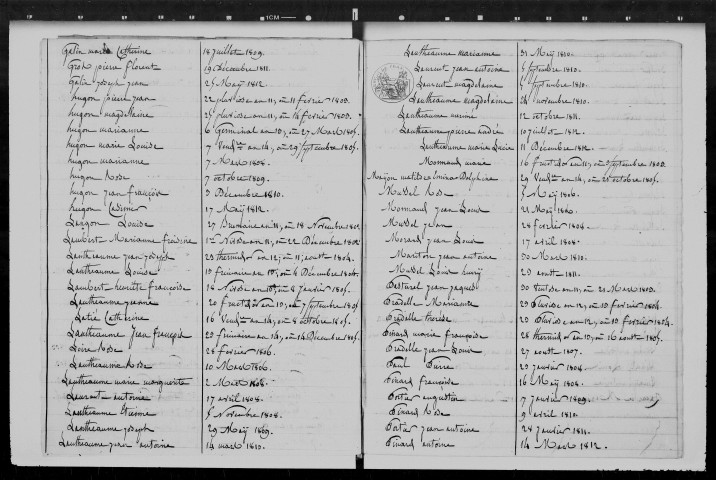 Galin marie Catherine 18 Juillet 1809.
Gros pierre florent 19 Décembre 1811.
Galin joseph jean 25 Maÿ 1812.
hugon pierre jean 22 pluviose an 11, ou 11 fevrier 1803.
hugon magdelaine 25 pluviose an 11, ou 14 fevrier 1803.
hugon marianne 6 Germinal an 13, ou 27 Mars 1805.
hugon marie Louise 7 Vend.re an 14, ou 29 Septembre 1805.
hugon marianne 7 Mars 1808.
hugon Rose 7 octobre 1809.
hugon jean françois 3 Décembre 1810.
hugon Casimir 17 Maÿ 1812.
Laugon Louise 27 Brumaire an 11, ou 18 Novembre 1802
Lambert Marianne 1er Nivose an 11, ou 22 Décembre 1802
Lantheaume jean joseph 23 thermidor an 12, ou 11 août 1804.
Lantheaume Louise 13 frimaire an 13, ou 4 Décembre 1804.
Lambert henriette françoise 18 Nivose an 13, ou 8 Janvier 1805.
Lantheaume 20 fructidor an 13, ou 7 Septembre 1805
Latil Catherine 16 Vend.re an 14, ou 8 octobre 1805.
Lantheaume Jean françois 23 frimaire an 14, ou 14 Décembre 1805.
Rose 28 fevrier 1806.
Lantheaume Rose 10 Mars 1806.
Lantheaume marie marguerite 2 Mars 1808.
Laurent antoine 17 avril 1808.
Lantheaume Etienne 5 Novembre 1808.
Lantheaume joseph 29 Maÿ 1809.
Lantheaume jean antoine 14 mars 1810.
Lantheaume marianne 31 Maÿ 1810.
Laurent jean antoine 5 Septembre 1810.
Laurent magdelaine 5 Septembre 1810.
Lantheaume magdelaine 24 novembre 1810.
Lantheaume marie 12 octobre 1811.
Lantheaume pierre andré 10 juillet 1812.
Lantheaume marie Lucie 11 Décembre 1812.
Mormand marie 16 fructidor an 11, ou 3 Septembre 1803.
Delphine 29 Vend.re an 14, ou 21 octobre 1805.
Mussel Rose 5 Maÿ 1806.
Mormand Jean Louis 21 Maÿ 1806.
Mussel jean 28 fevrier 1808.
Morard jean Louis 17 avril 1808.
jean antoine 30 Mars 1810.
Mussel Louis henry 29 août 1811.
Pesturel jean jaques 30 Ventose an 11, ou 21 Mars 1803.
Pradelle Marianne 29 Pluviose an 12, ou 19 fevrier 1804.
Pradelle therese 29 Pluviose an 12, ou 19 fevrier 1804.
Pinard marie françoise 28 thermidor an 13, ou 16 août 1805.
Pradelle jean Louis 27 août 1807.
Paul Pierre 29 janvier 1808.
Pinard françoise 16 Maÿ 1808.
Portas augustin 7 janvier 1809.
Pinard Rose 9 avril 1810.
Portas jean antoine 28 janvier 1811.
Pinard antoine 14 Mars 1812.